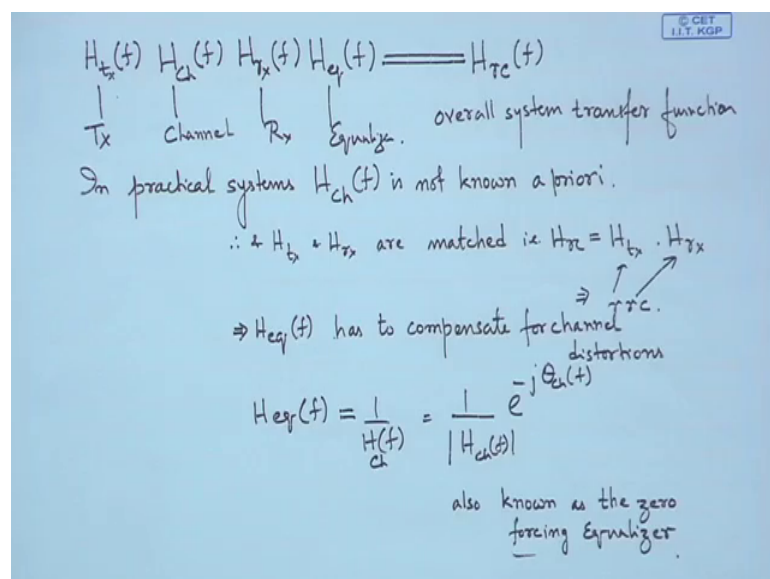 © CET
I.I.T. KGP
H_tx(f) H_ch(f) H_rx(f) H_eq(f) = H_rc(f)
Tx Channel Rx Equalizer. overall system transfer function
In practical systems H_ch(f) is not known a priori.
∴ & H_tx & H_rx are matched i.e. H_rc = H_tx . H_rx
⇒ rrc.
⇒ H_eq(f) has to compensate for channel
distortions
H_eq(f) = 1/H_ch(f) = 1/|H_ch(f)| e^{-jθ_ch(f)}
also known as the zero
forcing Equalizer.